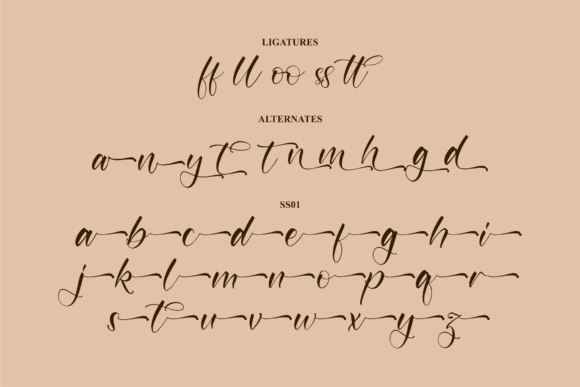 LIGATURES
ff ll oo ss tt
ALTERNATES
a n y t t n m h g d
SS01
a b c d e f g h i
j k l m n o p q r
s t u v w x y z